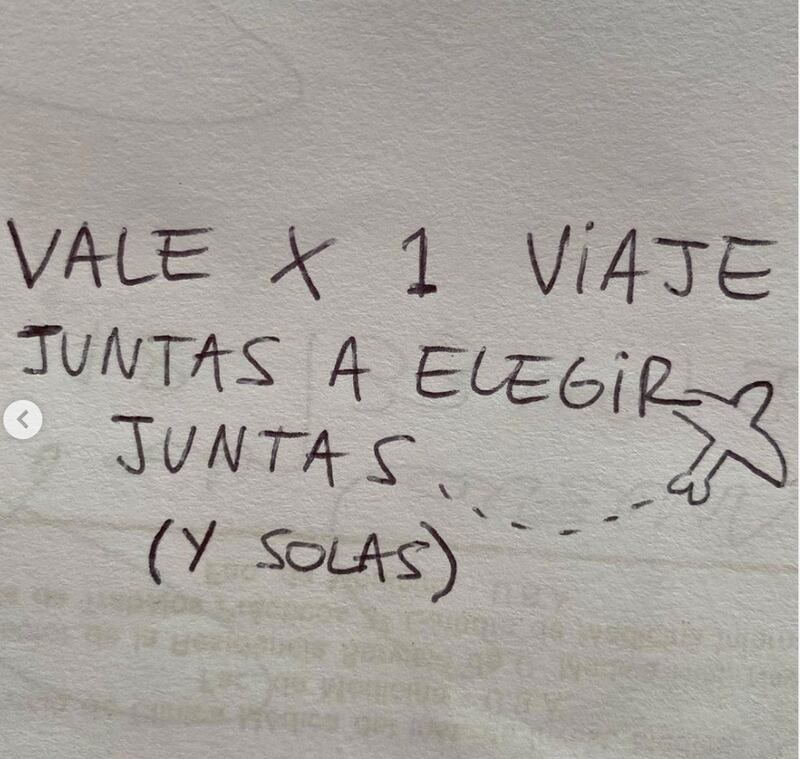 VALE X 1 VIAJE
JUNTAS A ELEGIR
JUNTAS
(Y SOLAS)